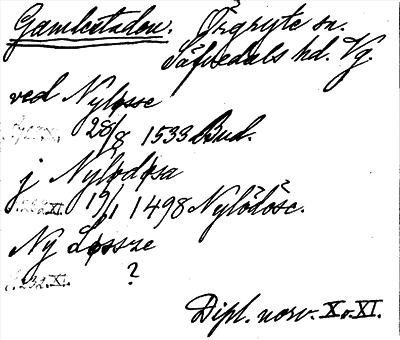 Gamlestaden. Örgryte sn.
Säfvedals hd. Vg.
ved Nyløsse
28/8 1533 Bud.
j Nylødøsa
XI. 19/1 1498 Nylödöse.
Ny Løssze
s. 232. XI. ?
Dipl. norv. X o. XI.